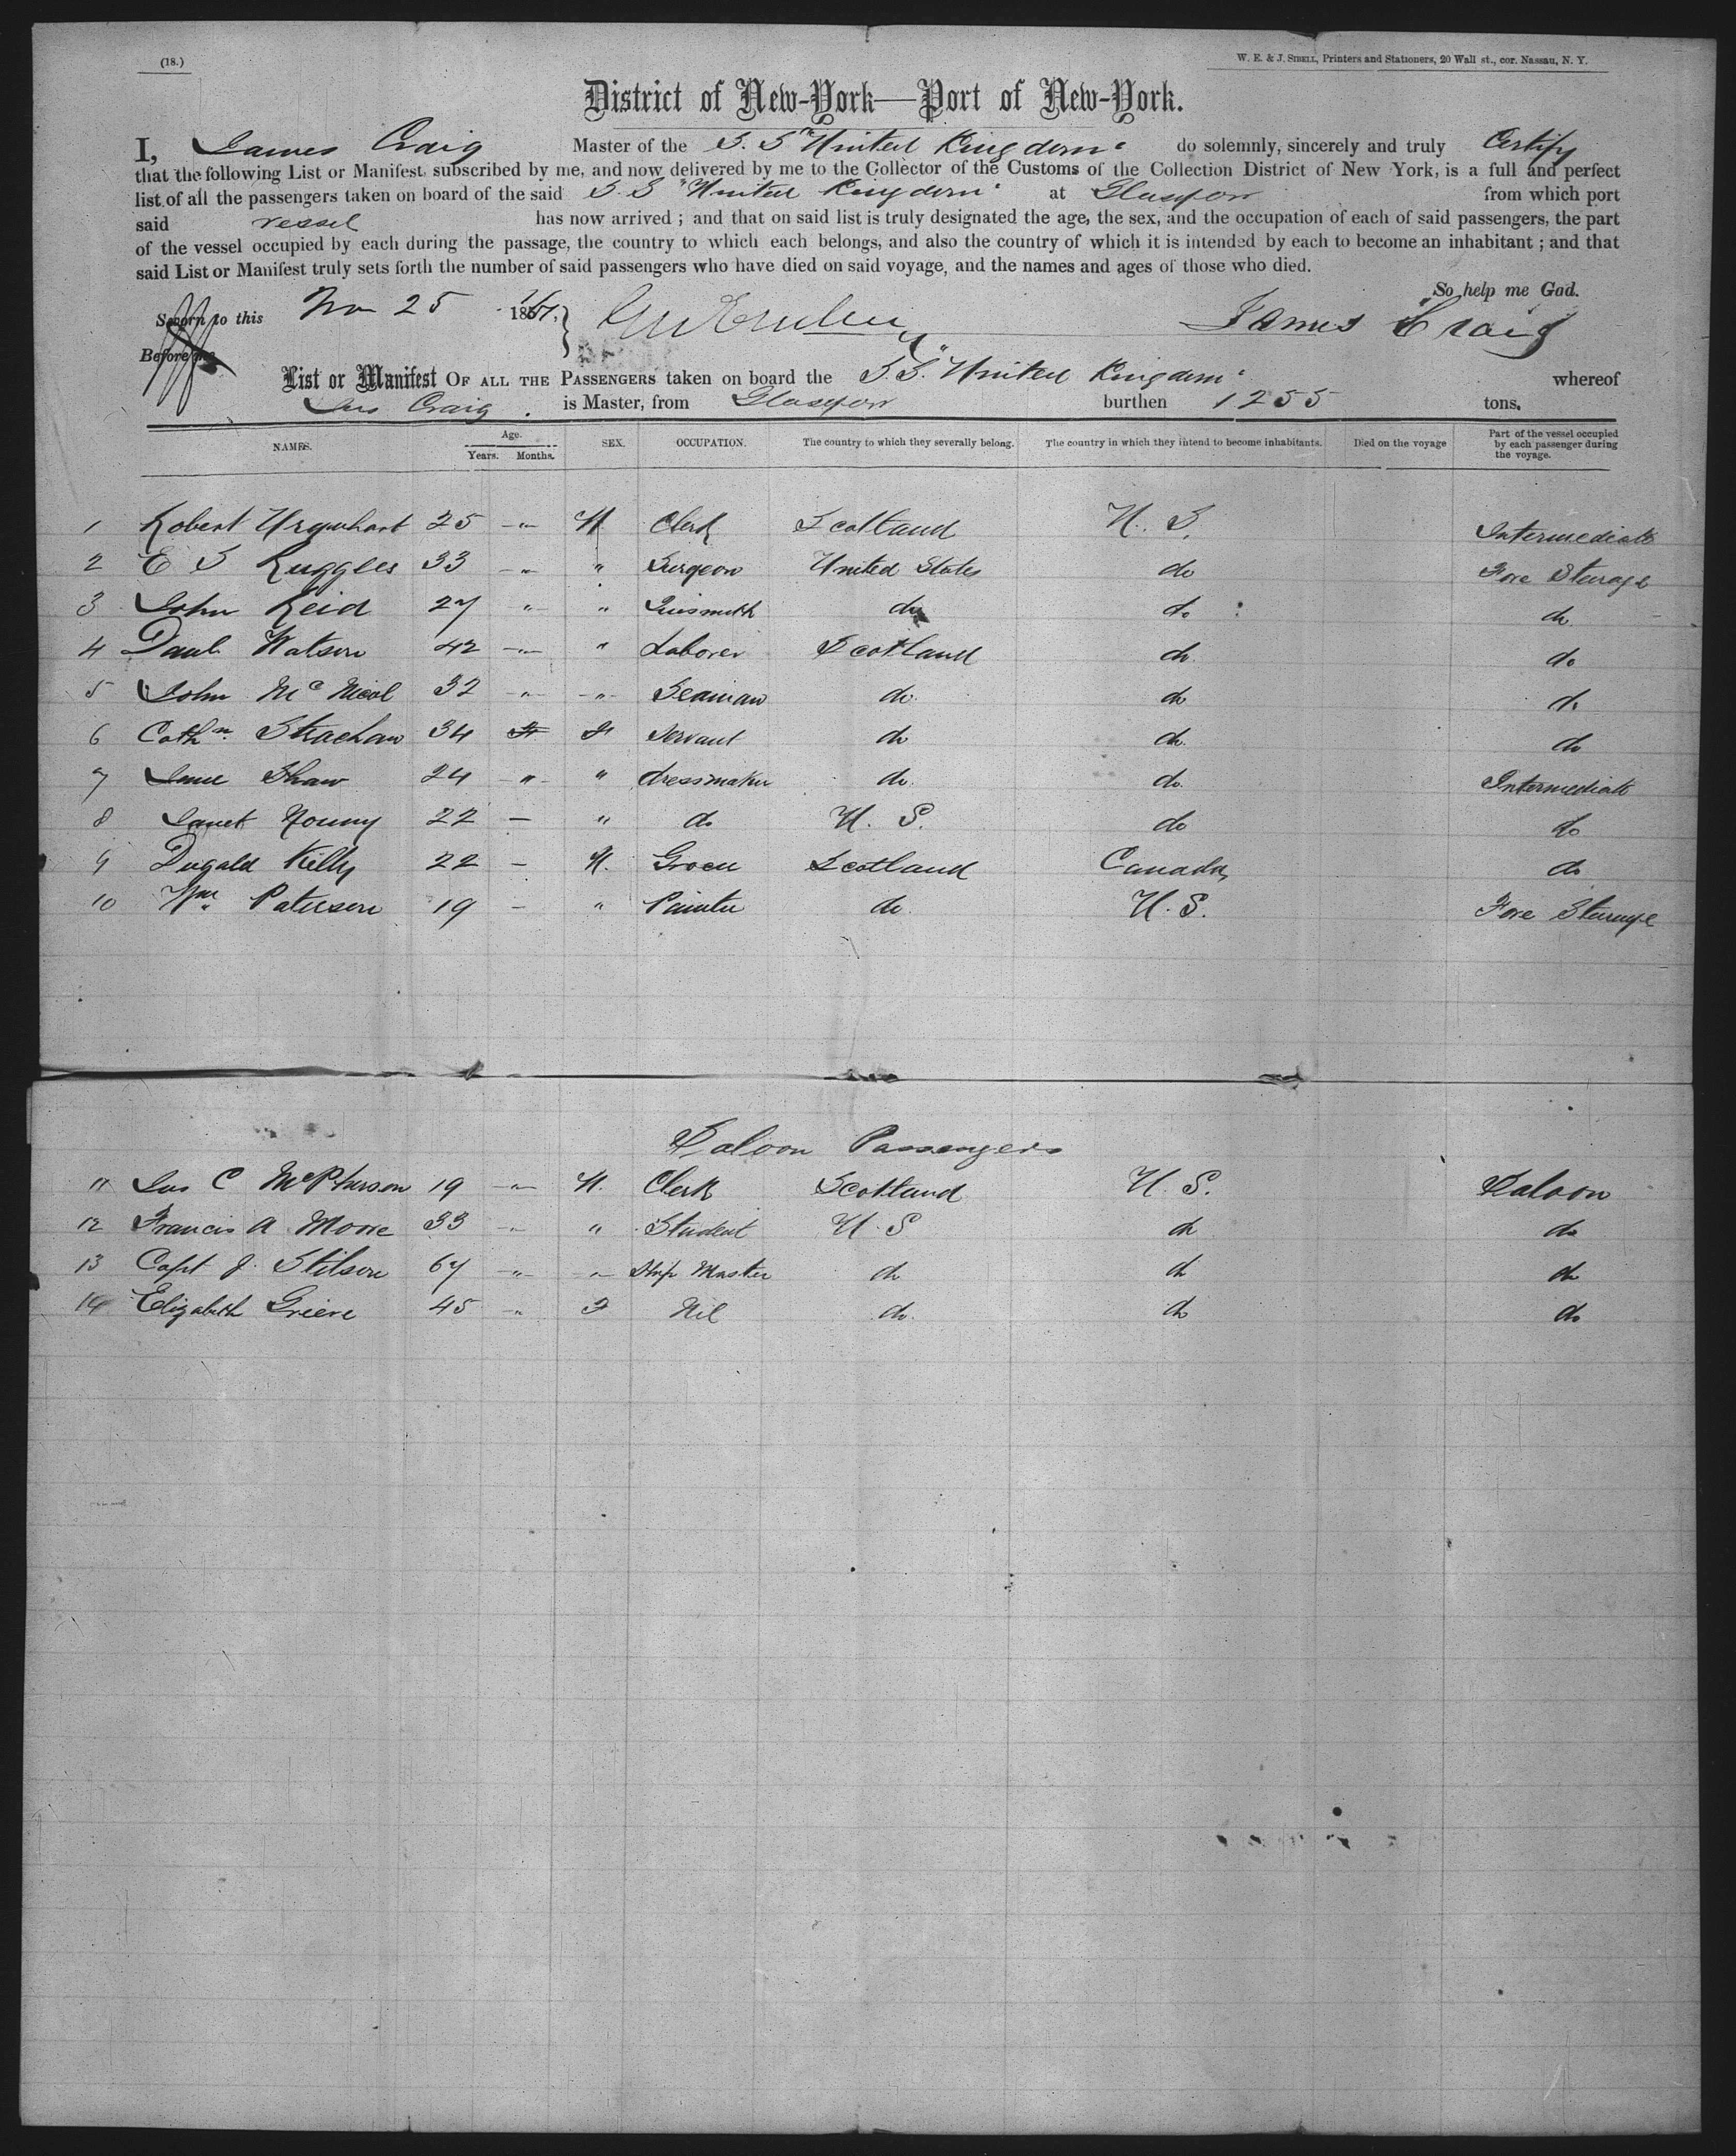 (18.)
W. E. & J. SIBELL, Printers and Stationers, 20 Wall st., cor. Nassau, N. Y.
District of New-York—Port of New-York.
I, James Craig Master of the S. S "United Kingdom" do solemnly, sincerely and truly Certify
that the following List or Manifest subscribed by me, and now delivered by me to the Collector of the Customs of the Collection District of New York, is a full and perfect
list of all the passengers taken on board of the said S. S "United Kingdom" at Glasgow from which port
said vessel has now arrived ; and that on said list is truly designated the age, the sex, and the occupation of each of said passengers, the part
of the vessel occupied by each during the passage, the country to which each belongs, and also the country of which it is intended by each to become an inhabitant ; and that
said List or Manifest truly sets forth the number of said passengers who have died on said voyage, and the names and ages of those who died.
So help me God.
Sworn to this Nov 25 James Craig
Before me
List or Manifest OF ALL THE PASSENGERS taken on board the S. S. "United Kingdom" whereof
Jas Craig. is Master, from Glasgow burthen 1255 tons.
NAMES. Age. Years. Months. SEX. OCCUPATION. The country to which they severally belong. The country in which they intend to become inhabitants. Died on the voyage Part of the vessel occupied by each passenger during the voyage.
1 Robert Urquhart 25 -"- M Clerk Scotland U. S. Intermediate
2 E S Ruggles 33 -"- " Surgeon United States do Fore Steerage
3 John Reid 27 " " Tinsmith do do do
4 Watson 42 -"- " Laborer Scotland do do
5 John McNicol 32 -"- -"- Seaman do do do
6 Cathn Strachan 34 F F Servant do do do
7 Shaw 24 -"- " dressmaker do do Intermediate
8 Janet Young 22 - " do U. S. do do
9 Dugald Kelly 22 - M. Grocer Scotland Canada do
10 Wm Paterson 19 - " Painter do U. S. Fore Steerage
Saloon Passengers
11 Jas C McPherson 19 -"- M. Clerk Scotland U. S. Saloon
12 Francis A Moore 33 -"- " Student U. S do do
13 Capt J. Stilson 67 -"- -"- Ship Master do do do
14 Elizabeth Grieve 45 -"- F Nil do do do